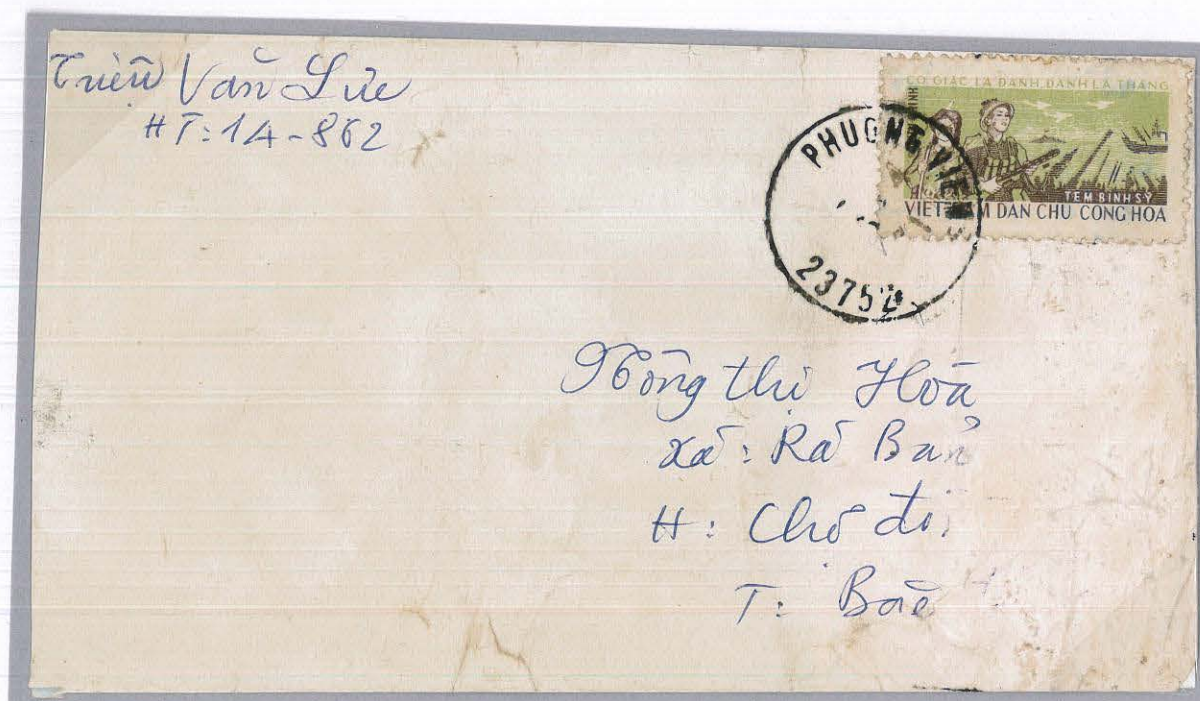 Triệu Văn Lưu
HT: 1A-862
CÓ GIẶC LÀ ĐÁNH ĐÁNH LÀ THẮNG
TEM BINH SỸ
VIET M DAN CHU CONG HOA
PHUONG VIEN
23752
Nông thị Hoà
xã: Rã Bản
H: Chợ đồn
T: Bắc